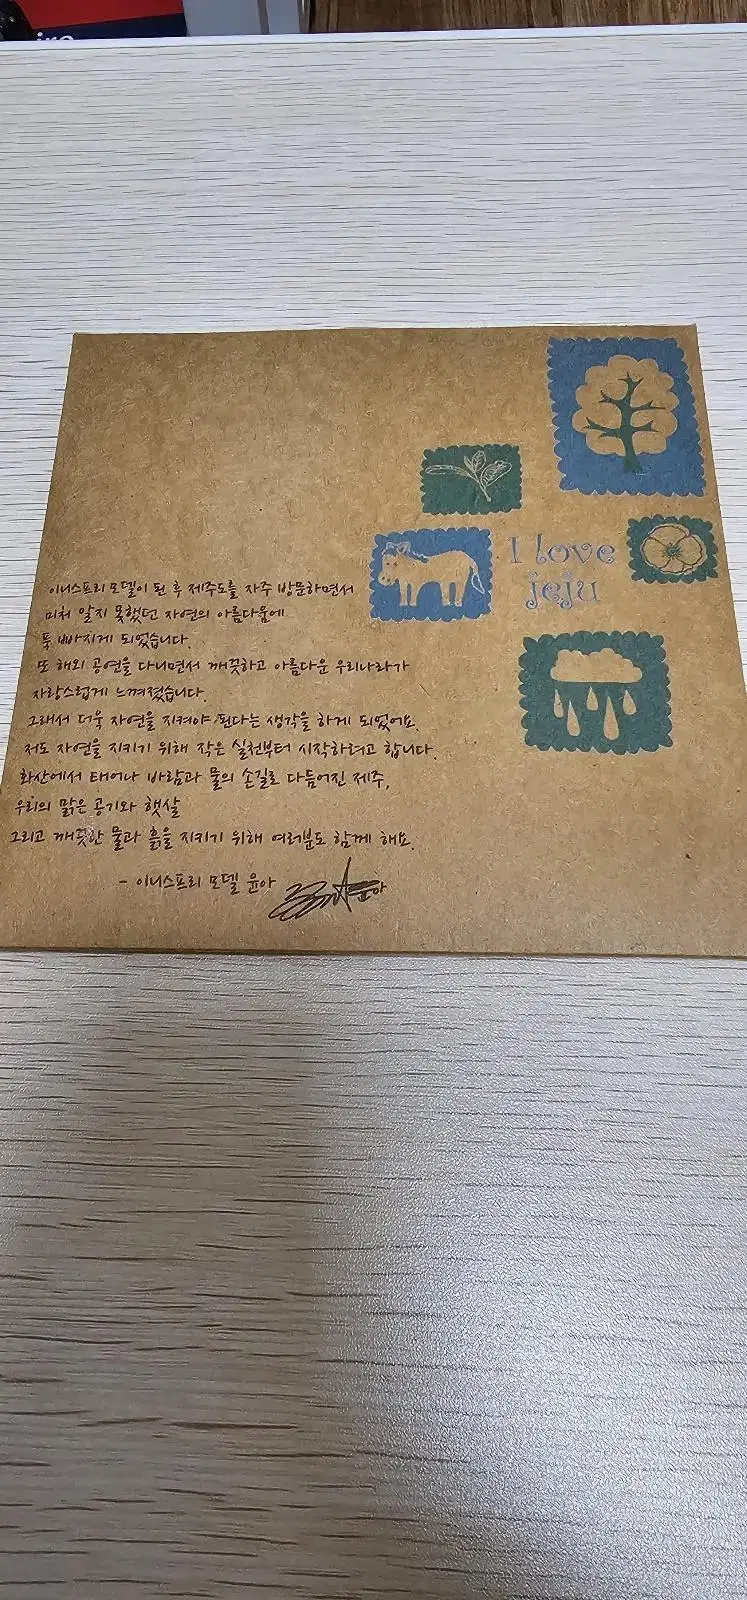 I love
jeju
이니스프리 모델이 된 후 제주도를 자주 방문하면서
미처 알지 못했던 자연의 아름다움에
푹 빠지게 되었습니다.
또 해외 공연을 다니면서 깨끗하고 아름다운 우리나라가
자랑스럽게 느껴졌습니다.
그래서 더욱 자연을 지켜야 된다는 생각을 하게 되었어요.
저도 자연을 지키기 위해 작은 실천부터 시작하려고 합니다.
화산에서 태어나 바람과 물의 손길로 다듬어진 제주,
우리의 맑은 공기와 햇살
그리고 깨끗한 물과 흙을 지키기 위해 여러분도 함께 해요.
- 이니스프리 모델 윤아